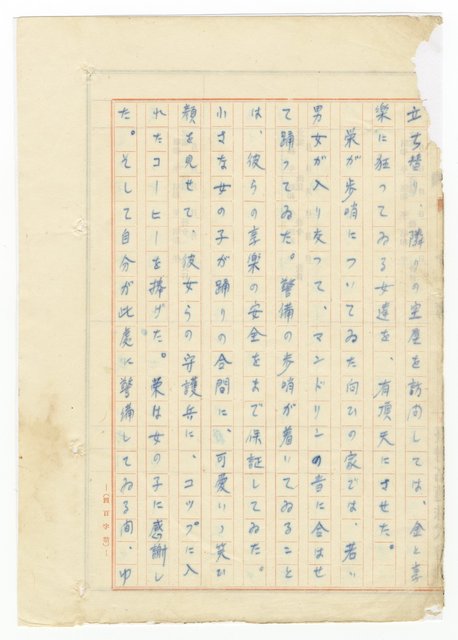 立ち替り、隣りの室屋を訪問しては、金と享
楽に狂ってゐる女達を、有頂天にさせた。
栄が歩哨についてゐた向ひの家では、若い
男女が入り交って、マンドリンの音に合はせ
て踊ってゐた。警備の歩哨が着いてゐること
は、彼らの享楽の安全をまで保証してゐた。
小さな女の子が踊りの合間に、可愛いゝ笑ひ
顔を見せて、彼女らの守護兵に、コップに入
れたコーヒーを捧げた。栄は女の子に感謝し
た。そして自分が此處に警備してゐる間、ゆ
(四百字詰)